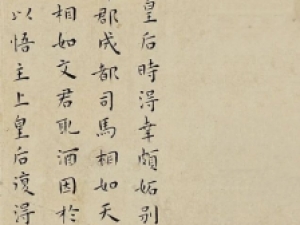 皇后時得幸頗妬别
郡成都司馬相如天
相如文君取酒因於
以悟主上皇后復得